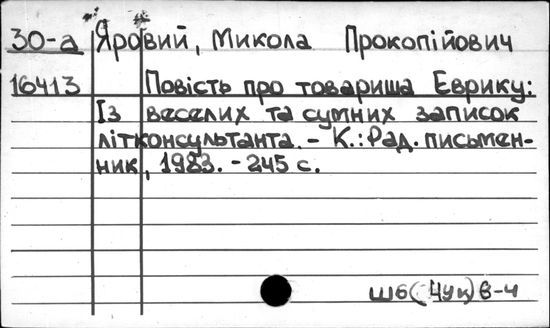 30-а Яровий, Микола Прокопійович
16413 Повість про товариша Еврику:
Із веселих та сумних записок
літконсультанта. – К.: Рад. письмен-
ник, 1983. – 245 с.
Ш6(4Ук)6-4